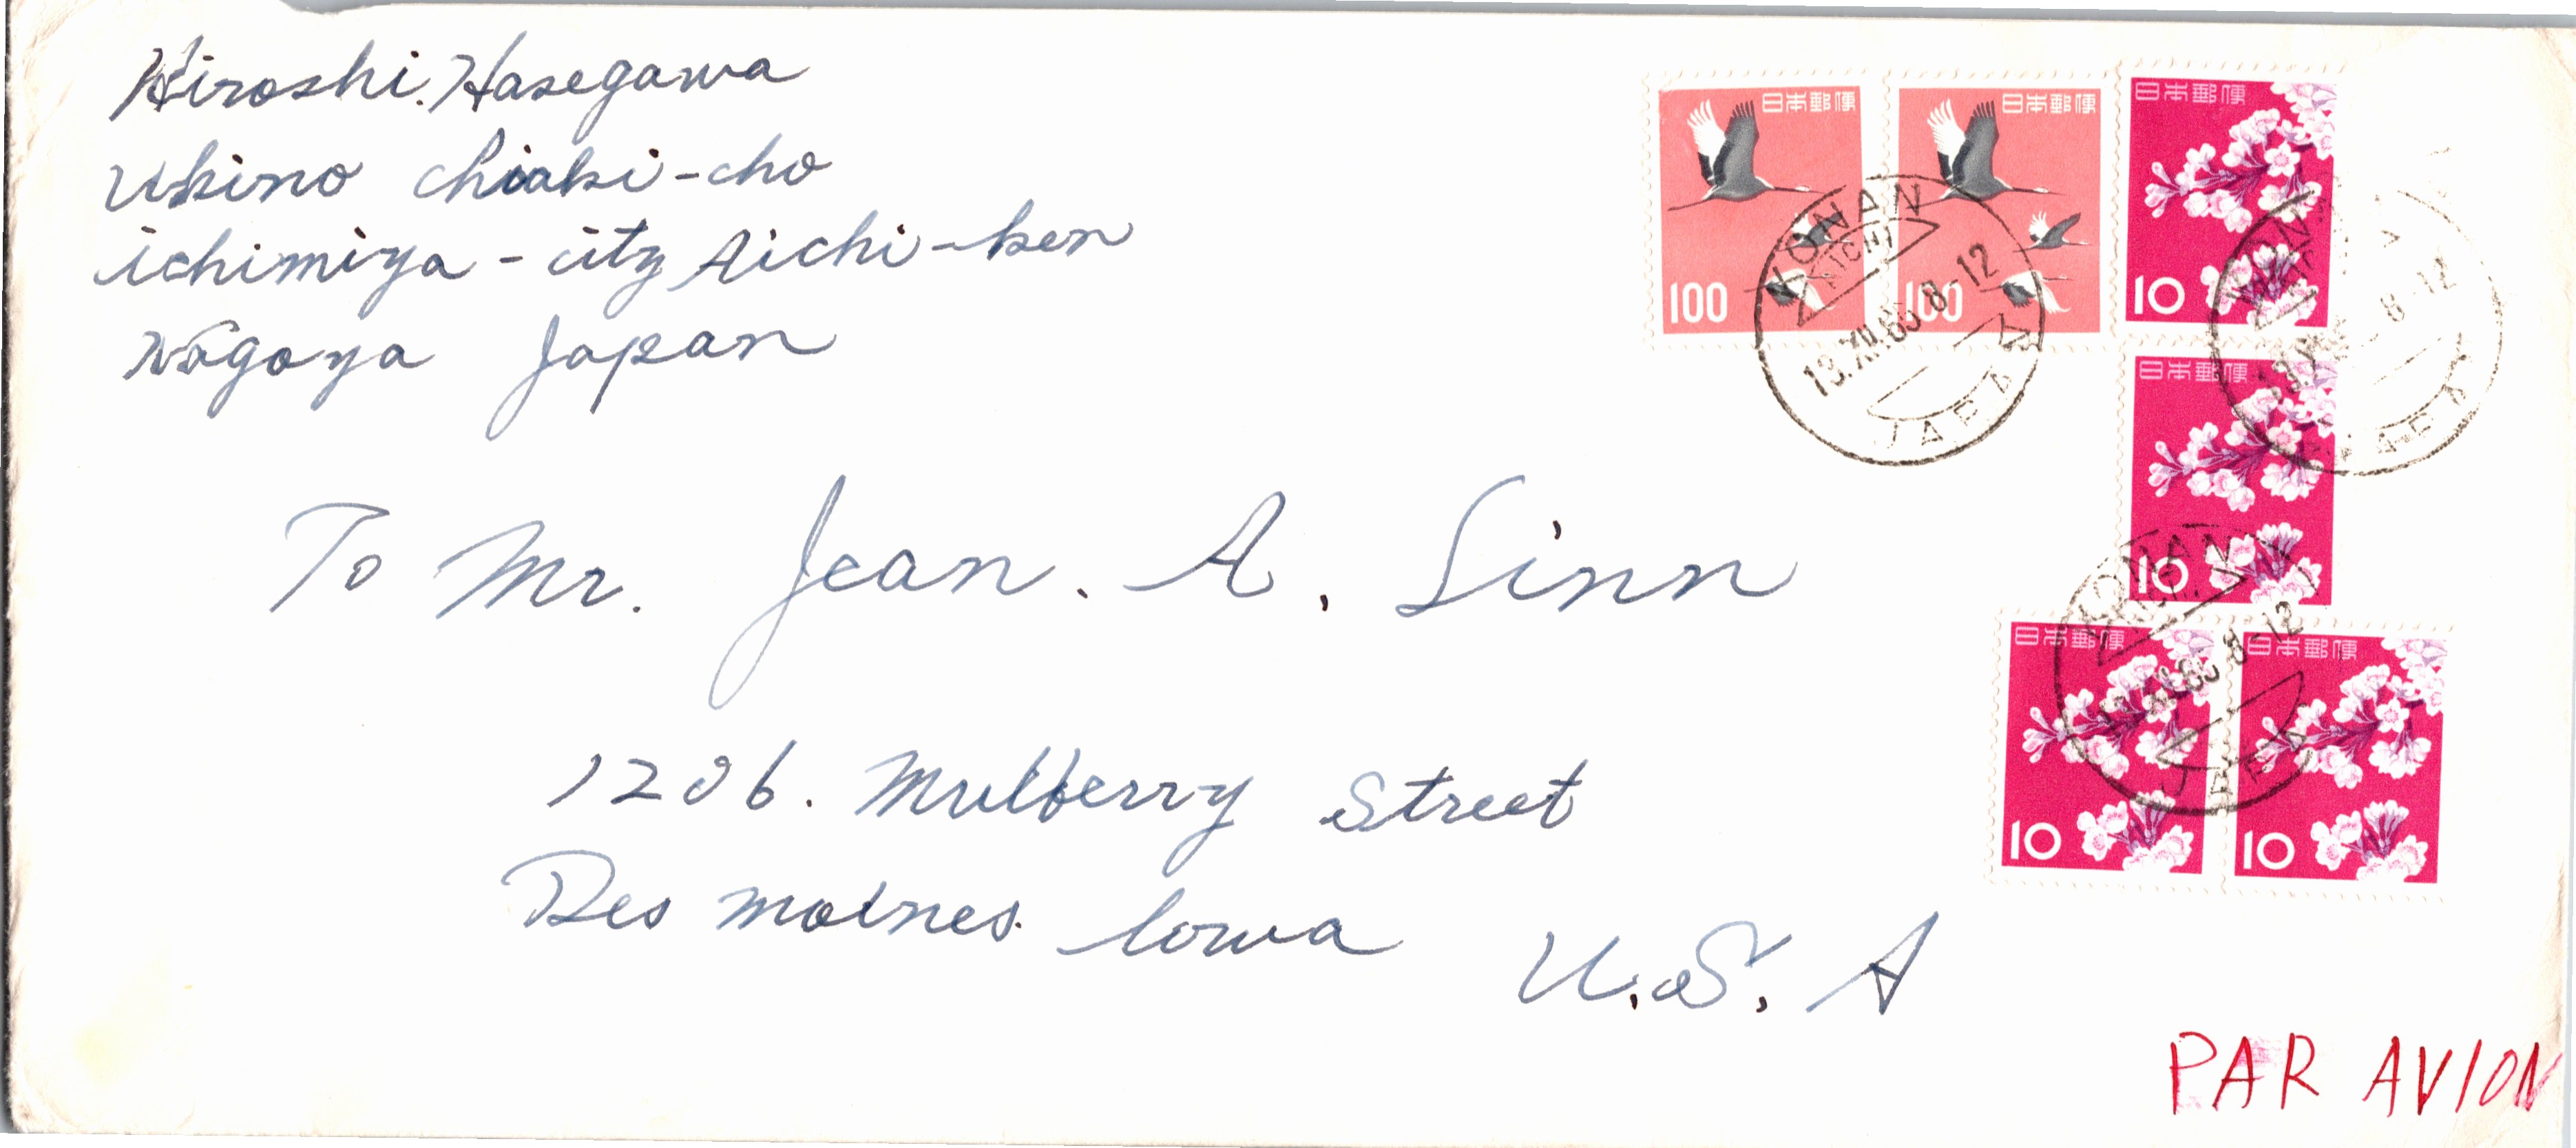 Hiroshi. Hasegawa
Ukino chiaki-cho
ichimiya-city Aichi-ken
Nagoya Japan
日本郵便
100
日本郵便
100
日本郵便
10
日本郵便
10
日本郵便
10
日本郵便
10
KONAN
AICHI
13.XII.65 8-12
JAPAN
KONAN
8-12
JAPAN
KONAN
AICHI
8-12
JAPAN
To Mr. Jean. A. Linn
1206. Mulberry Street
Des moines. Iowa
U.S. A
PAR AVION